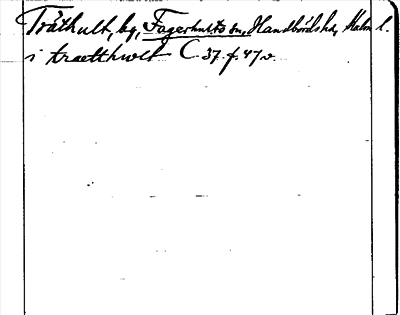 Tråthult, by, Fagerhults sn, Handbörds hd, Kalm l.
i traetthwlt C 37 f. 47 v.